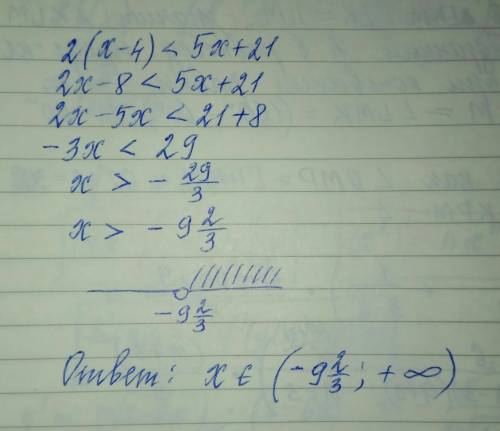 2(x-4) < 5x+21
2x-8 < 5x+21
2x-5x < 21+8
-3x < 29
x > - 29/3
x > - 9 2/3
-9 2/3
Ответ: x ∈ (-9 2/3; +∞)